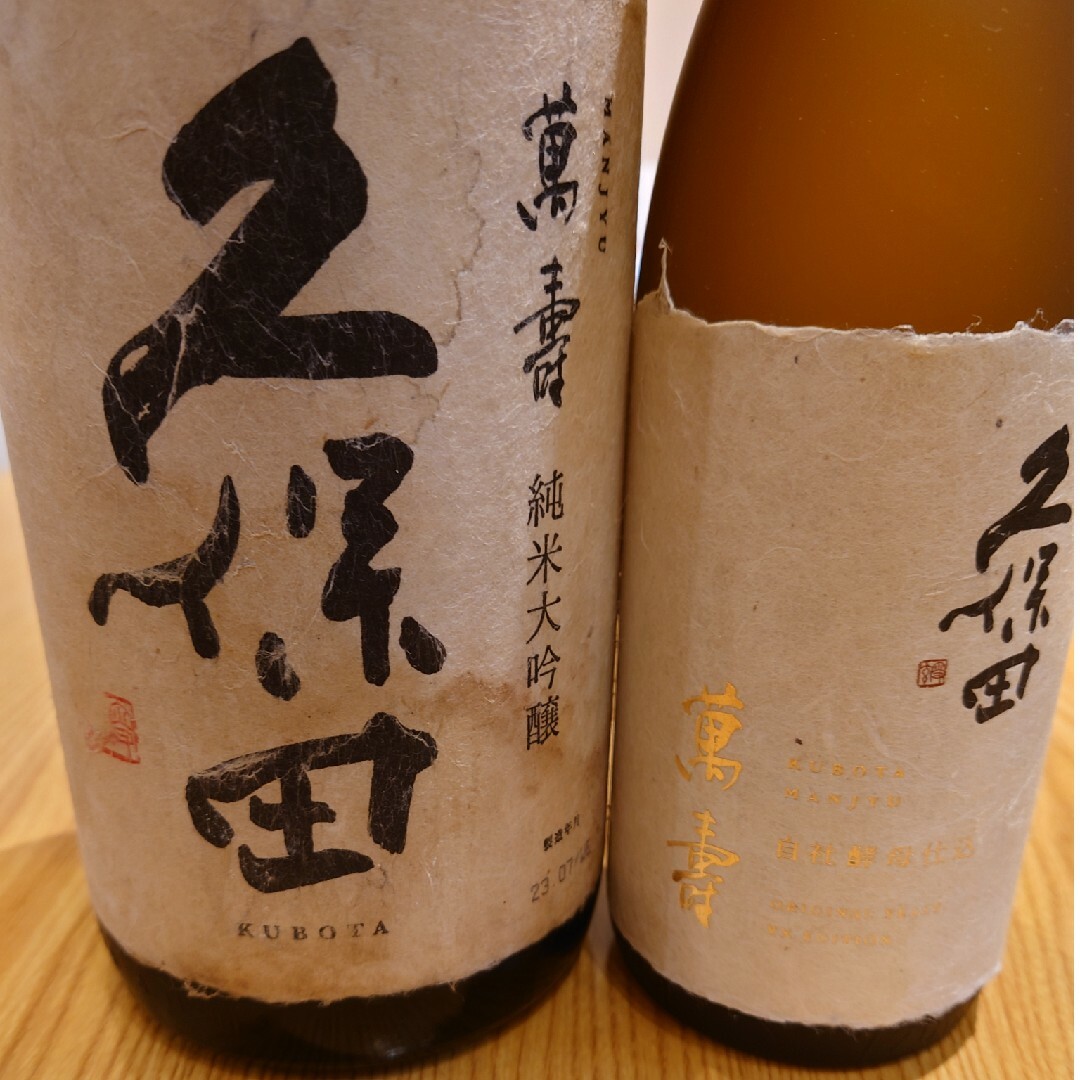 久保田
KUBOTA
萬寿
MANJYU
純米大吟醸
製造年月
23.07
久保田
萬寿
KUBOTA
MANJYU
自社酵母仕込